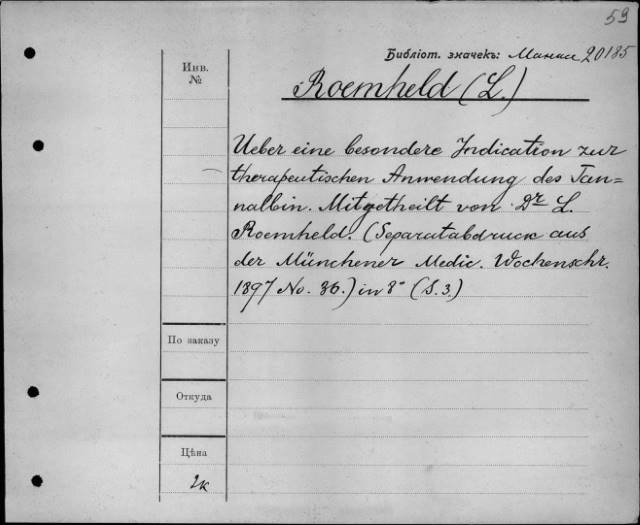 59
Библіот. значекъ: 20185
Инв.
№
Roemheld (L.)
Ueber eine besondere Indication zur
therapeutischen Anwendung des Tan=
nalbin. Mitgetheilt von Dr L.
Roemheld. (Separatabdruck aus
der Münchener Medic. Wochenschr.
1897 No. 36.) in 8° (S. 3.)
По заказу
Откуда
Цѣна
2к